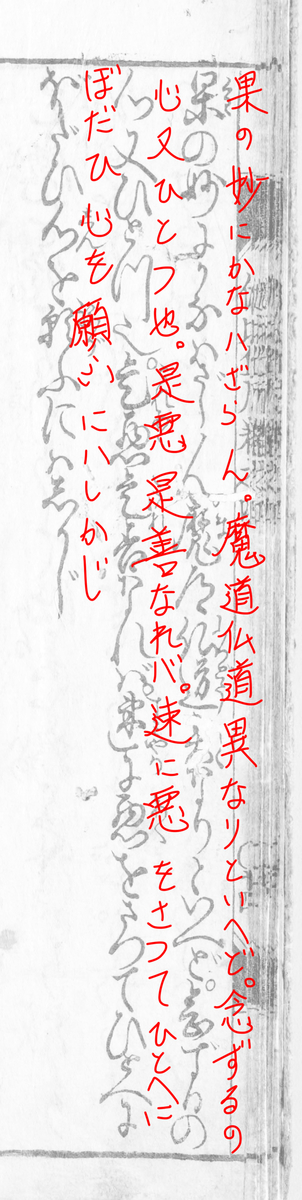 果の妙にかなハざらん。魔道仏道異なりといへど。念ずるの
心又ひとつ也。是悪是善なれバ。速に悪をさつてひとへに
ぼだひ心を願ふにハしかじ